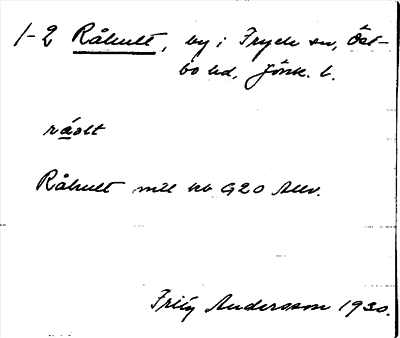 1-2 Råhult, by i Fryele sn, Öst-
bo hd, Jönk. l.
råolt
Råhult mtl kb G20 Allv.
Fritz Andersson 1930.